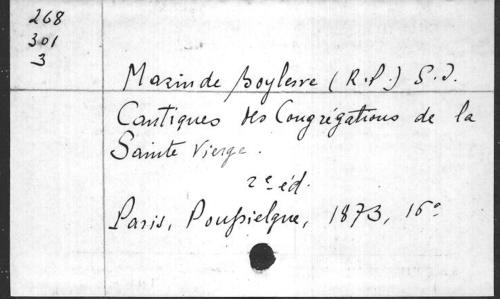 268
301
3
Marin de Boylesve (R.P.) S.J.
Cantiques des Congrégations de la
Sainte Vierge.
2e éd.
Paris, Poussielgue, 1873, 16o